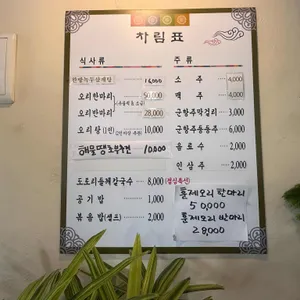 차림표
식사류
한방녹두삼계탕 16,000
오리한마리 50,000
오리반마리 28,000
오리탕(1인) 10,000
해물땡초부추전 10,000
도토리들깨칼국수 8,000 (점심특선)
공기밥 1,000
볶음밥(셀프) 2,000
주류
소주 4,000
맥주 4,000
군항주막걸리 3,000
군항주동동주 6,000
음료수 2,000
인삼주 2,000
훈제오리 한마리
50,000
훈제오리 반마리
28,000